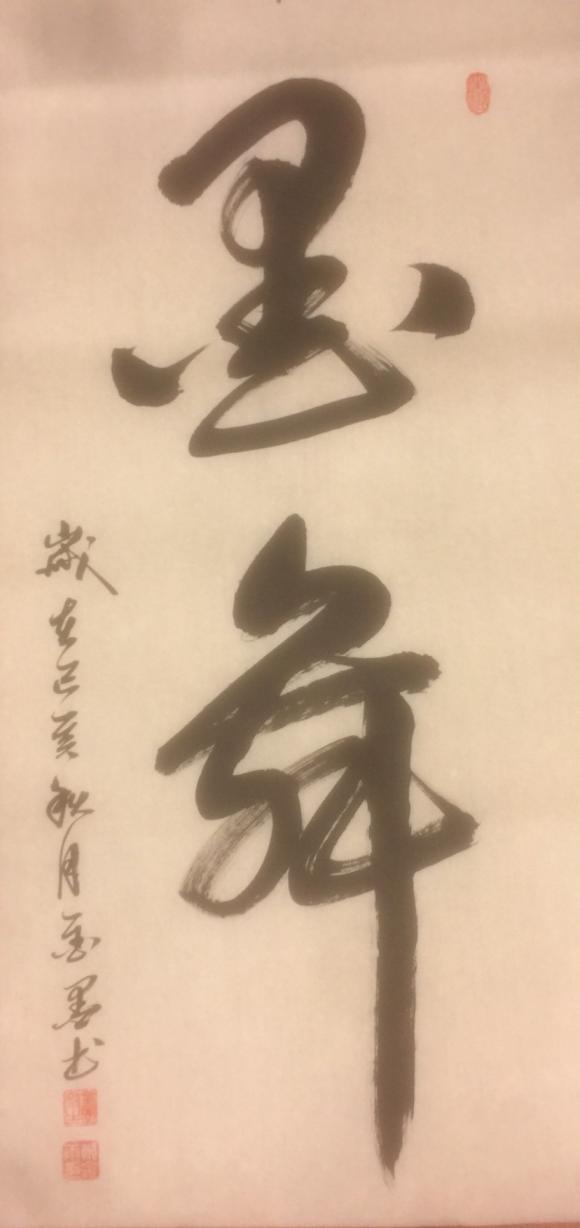 墨舞
歲在己亥秋月金墨书